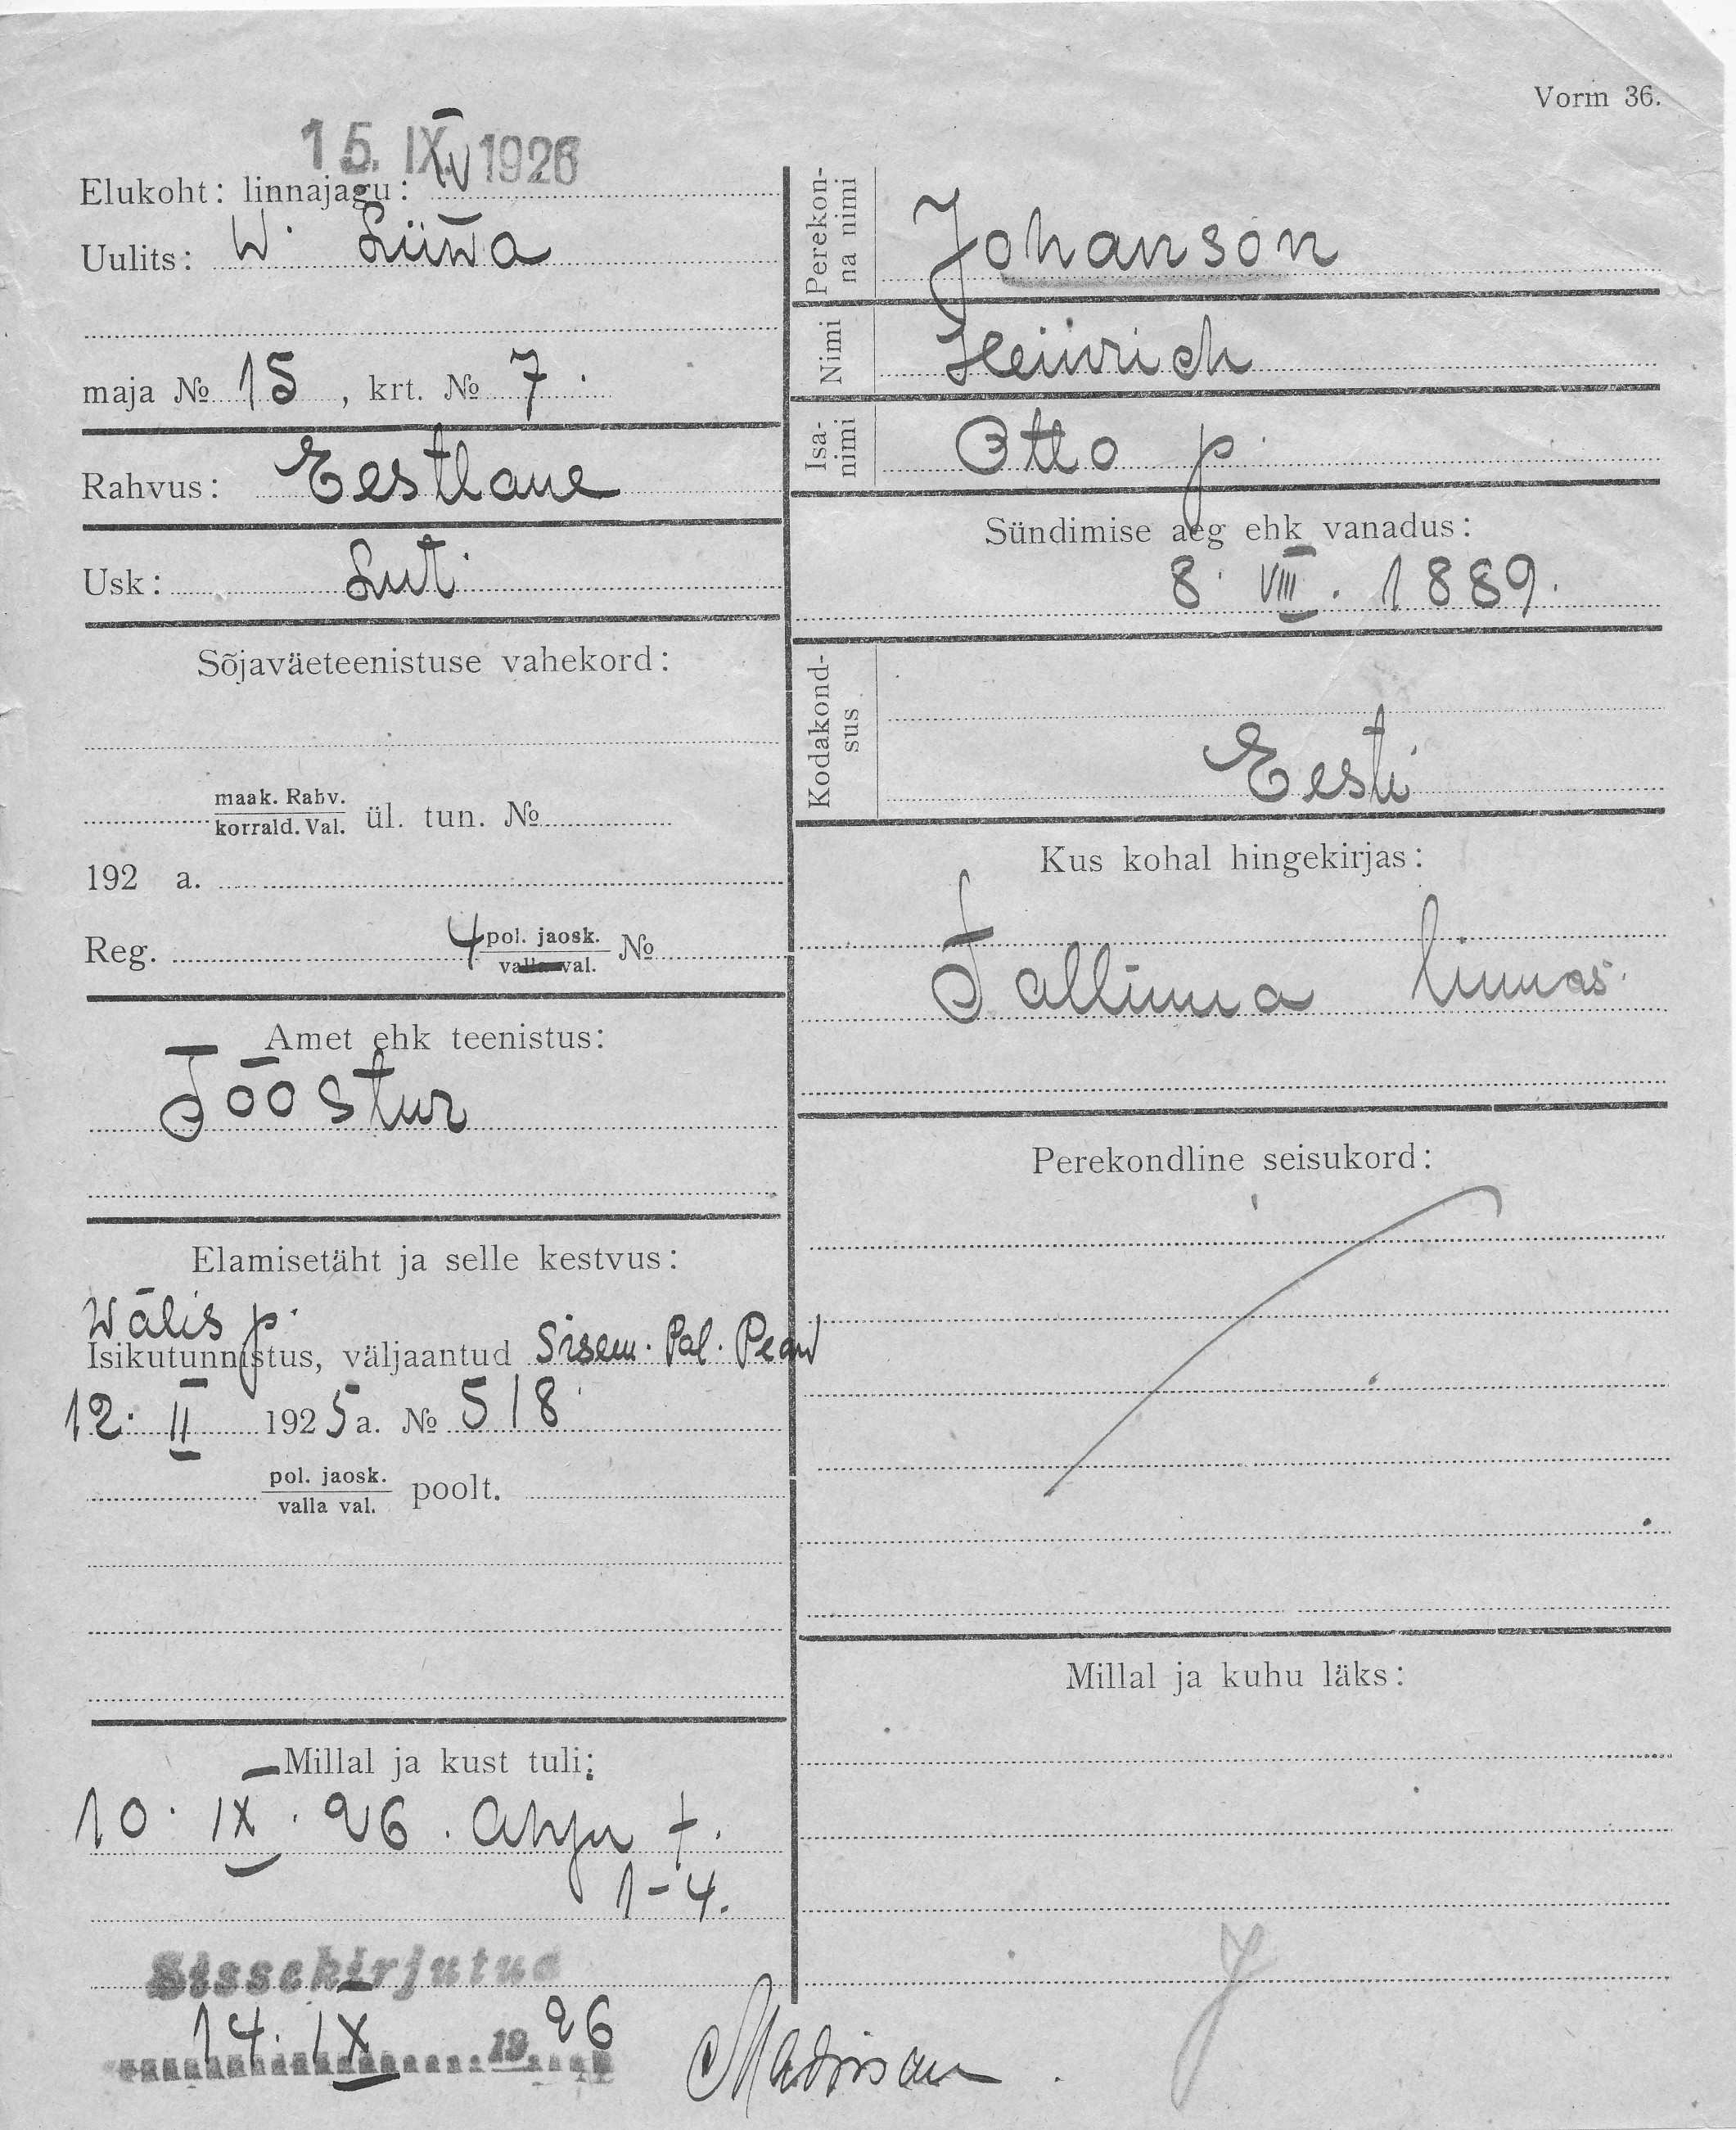 Vorm 36.
15. IX 1926
Elukoht: linnajagu: IV
Uulits: W. Liiwa
maja № 15, krt. № 7.
Rahvus: Eestlane
Usk: Lut.
Sõjaväeteenistuse vahekord:
maak. Rahv.
korrald. Val. ül. tun. №
192 a.
Reg. 4 pol. jaosk. №
valla val.
Amet ehk teenistus:
Tööstur
Elamisetäht ja selle kestvus:
Wälis p.
Isikutunnistus, väljaantud Sisem. Pol. Peav
12. II 1925 a. № 518
pol. jaosk.
valla val. poolt.
Millal ja kust tuli:
10. IX. 26. Ahju t.
1-4.
Sissekirjutud
14. IX 1926
Perekonna nimi
Johanson
Nimi
Heinrich
Isanimi
Otto p.
Sündimise aeg ehk vanadus:
8. VIII. 1889.
Kodakondsus
Eesti
Kus kohal hingekirjas:
Tallinna linnas.
Perekondline seisukord:
Millal ja kuhu läks: